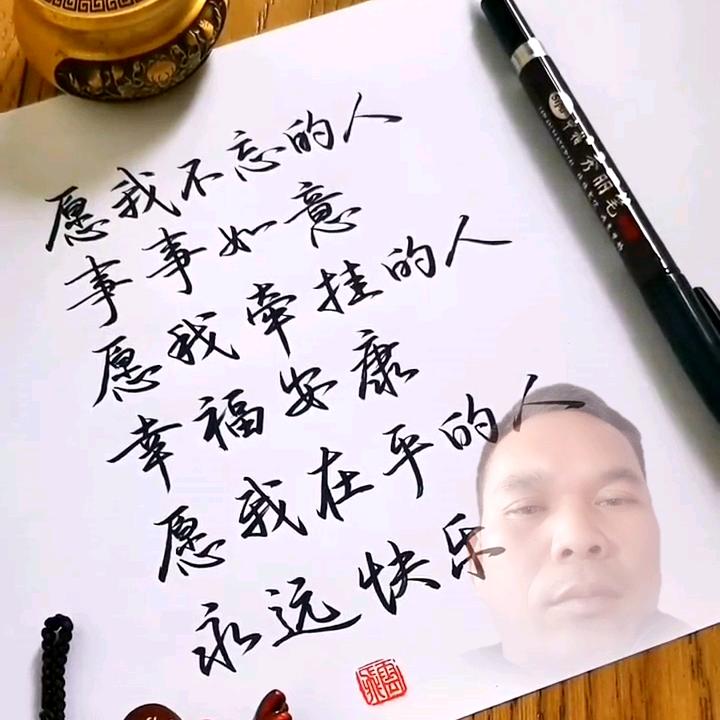 愿我不忘的人
事事如意
愿我牵挂的人
幸福安康
愿我在乎的人
永远快乐
秀丽笔